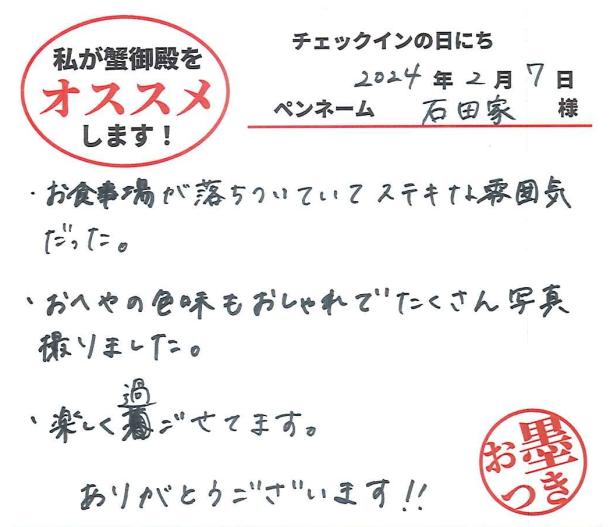 私が蟹御殿を
オススメ
します！
チェックインの日にち
2024年2月7日
ペンネーム 石田家 様
・お食事場が落ちついていてステキな雰囲気
だった。
・おへやの色味もおしゃれでたくさん写真
撮りました。
・楽しく過ごせてます。
ありがとうございます!!
お墨
つき